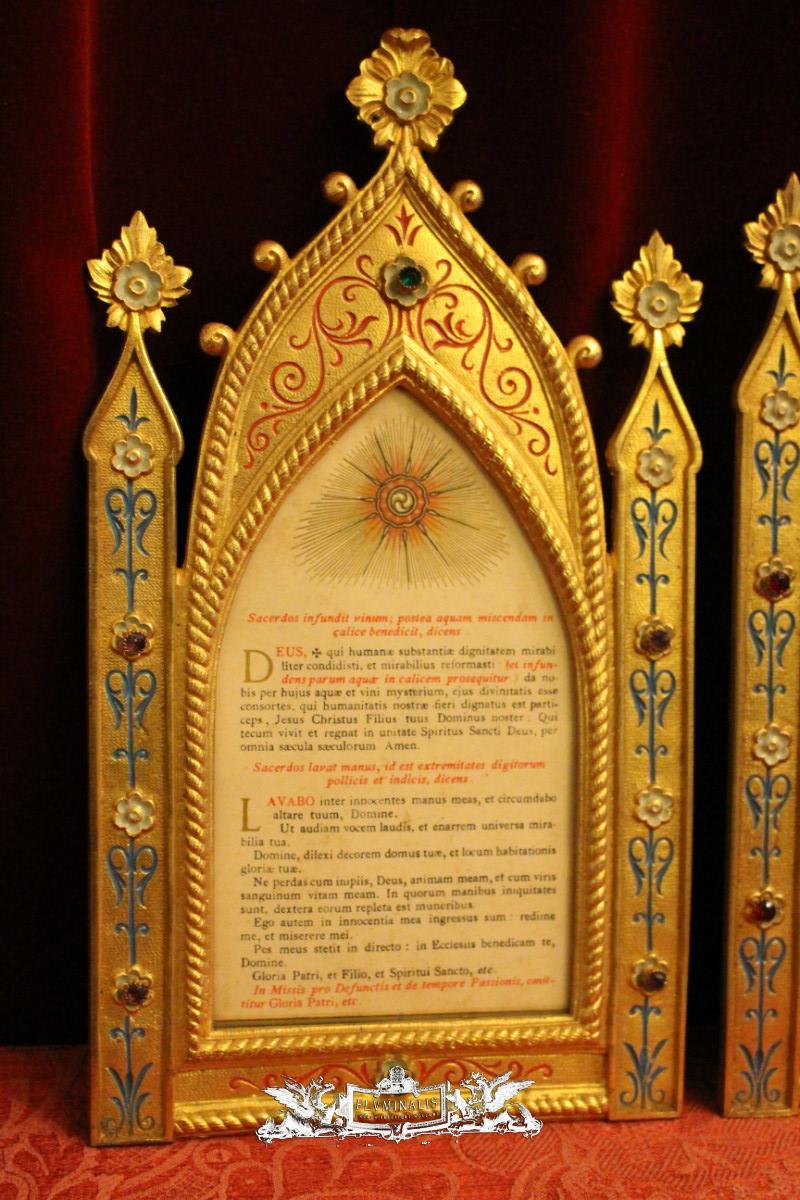 Sacerdos infundit vinum; postea aquam miscendam in
calice benedicit, dicens
DEUS, ✠ qui humanæ substantiæ dignitatem mirabi
liter condidisti, et mirabilius reformasti (et infun-
dens parum aquæ in calicem prosequitur) da no-
bis per hujus aquæ et vini mysterium, ejus divinitatis esse
consortes, qui humanitatis nostræ fieri dignatus est parti-
ceps, Jesus Christus Filius tuus Dominus noster: Qui
tecum vivit et regnat in unitate Spiritus Sancti Deus, per
omnia sæcula sæculorum Amen.
Sacerdos lavat manus, id est extremitates digitorum
pollicis et indicis, dicens.
LAVABO inter innocentes manus meas, et circumdabo
altare tuum, Domine.
Ut audiam vocem laudis, et enarrem universa mira-
bilia tua.
Domine, dilexi decorem domus tuæ, et locum habitationis
gloriæ tuæ.
Ne perdas cum impiis, Deus, animam meam, et cum viris
sanguinum vitam meam. In quorum manibus iniquitates
sunt, dextera eorum repleta est muneribus.
Ego autem in innocentia mea ingressus sum: redime
me, et miserere mei.
Pes meus stetit in directo: in Ecclesiis benedicam te,
Domine.
Gloria Patri, et Filio, et Spiritui Sancto, etc.
In Missis pro Defunctis et de tempore Passionis, omit-
titur Gloria Patri, etc.
FLVMINALIS